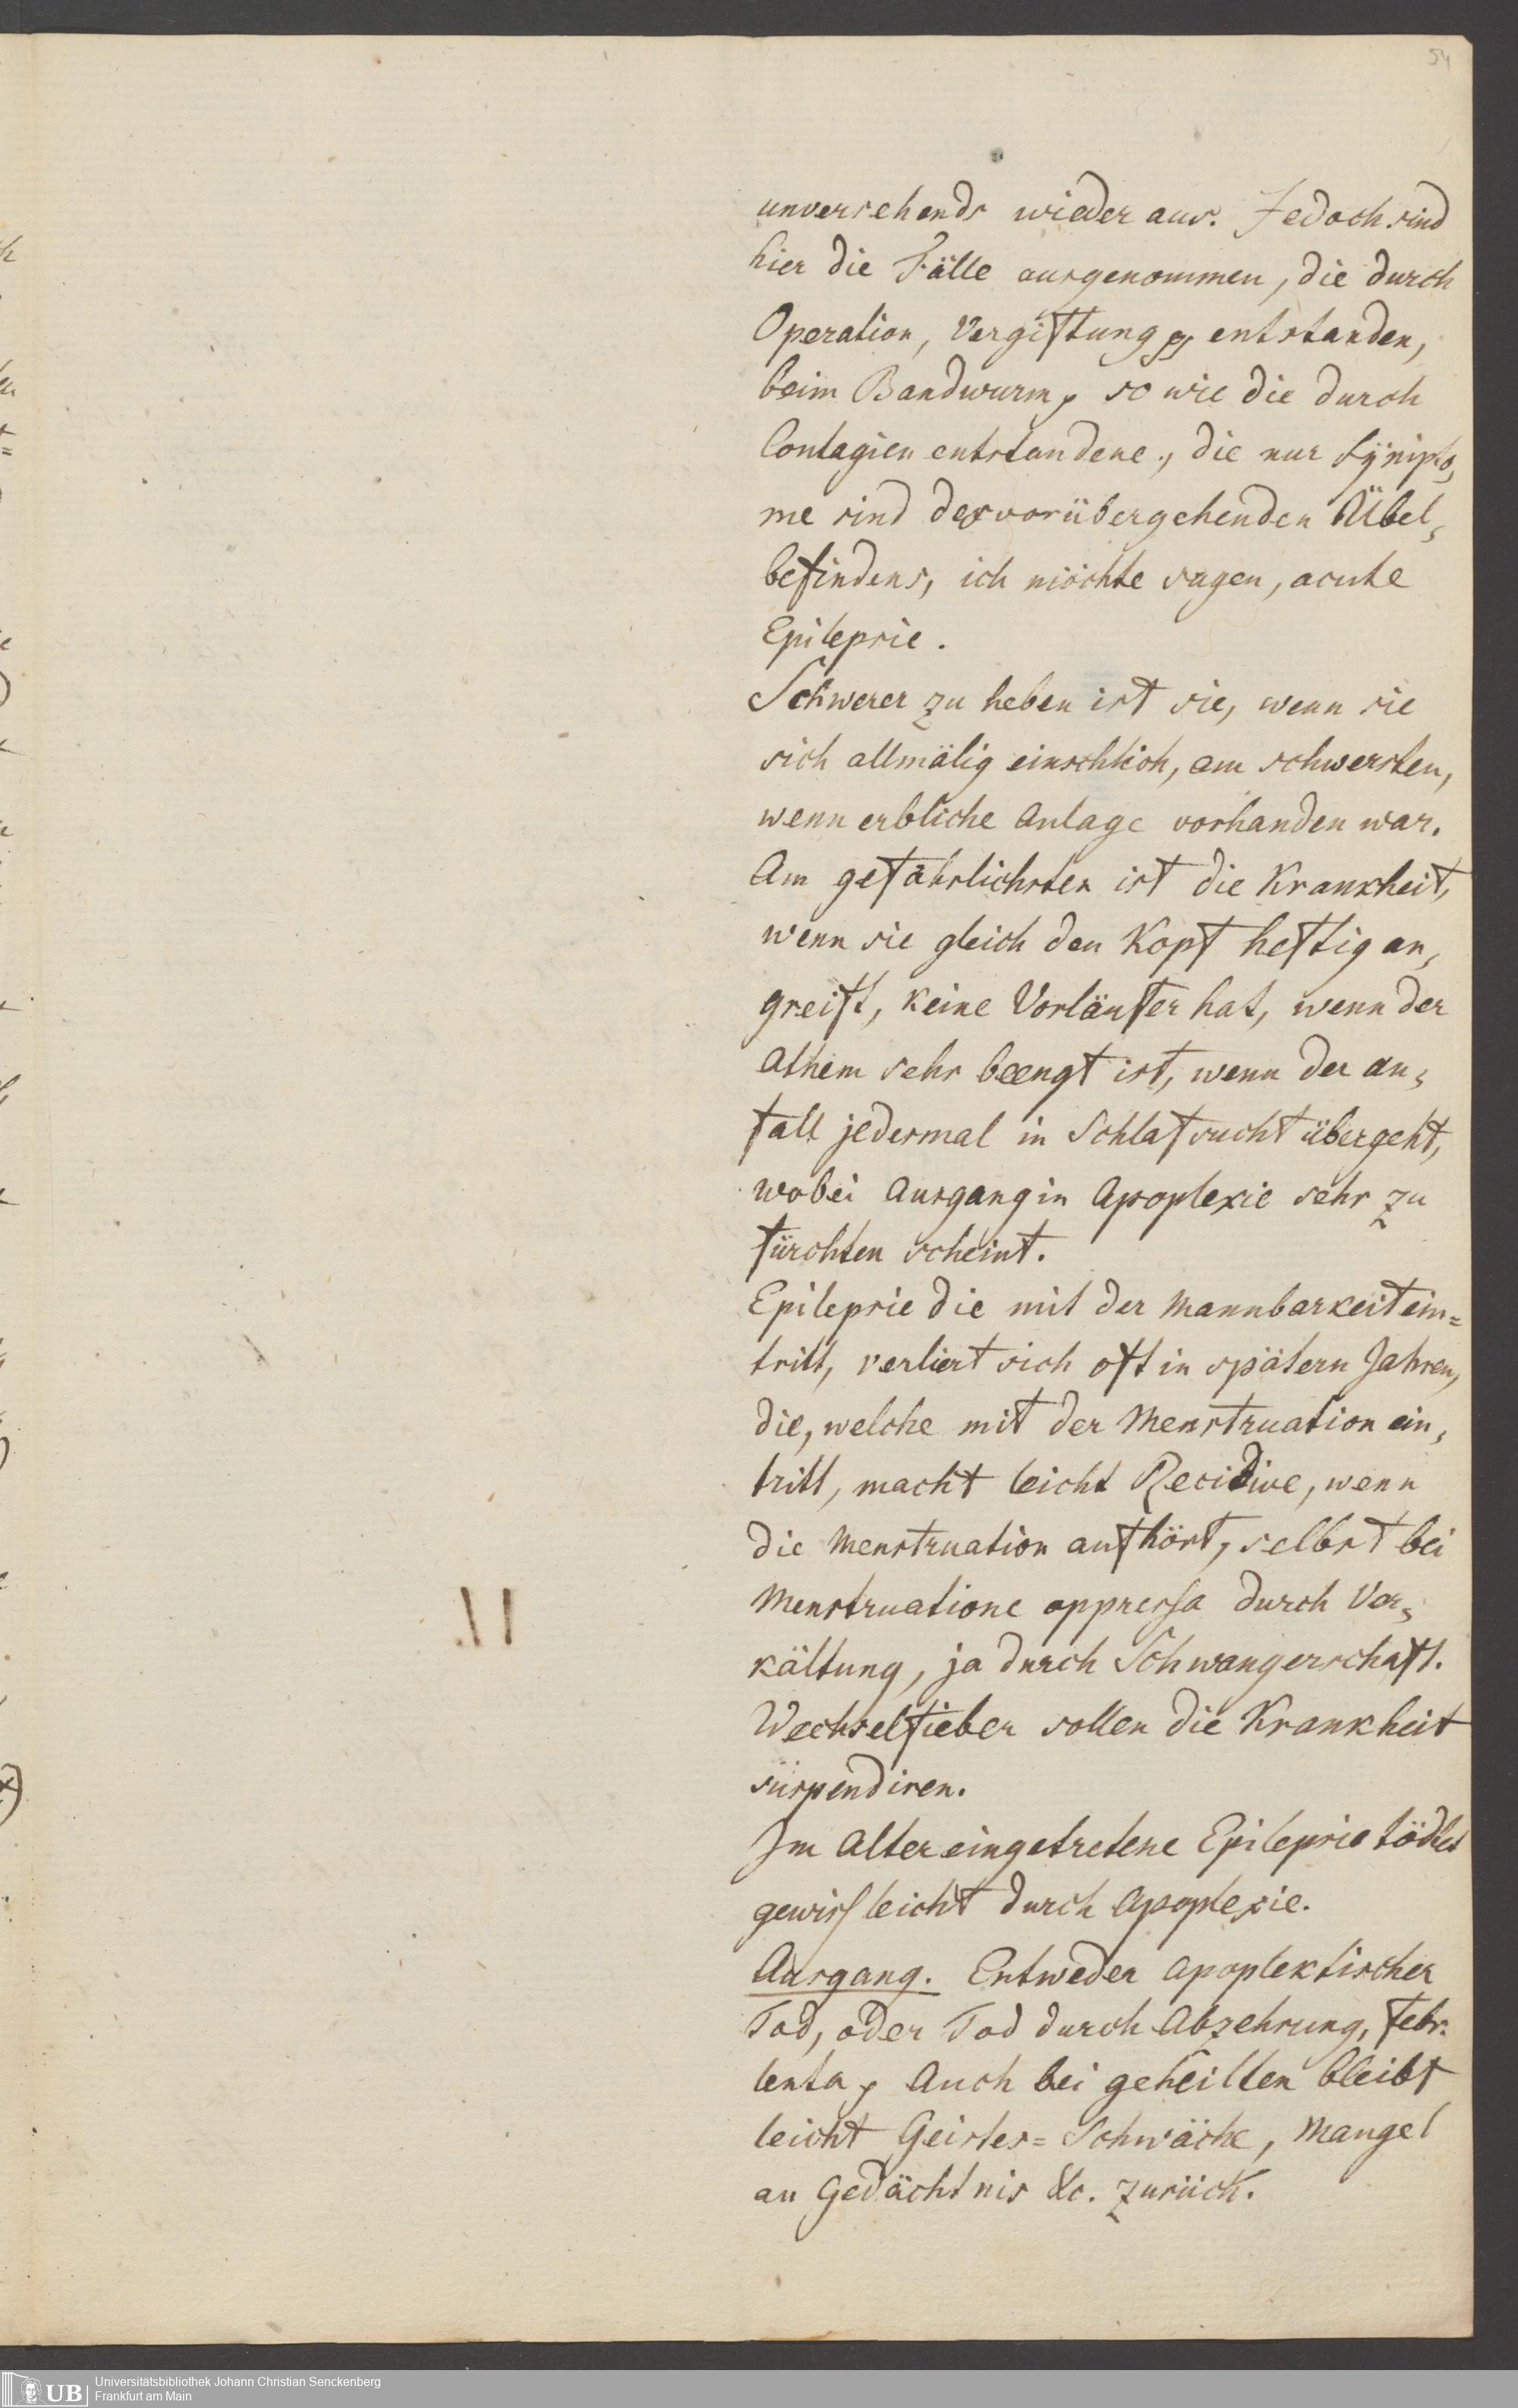 54
unversehends wieder aus. Jedoch sind
hier die Fälle ausgenommen, die durch
Operation, Vergiftung entstanden,
beim Bandwurm, so wie die durch
Contagien entstandene, die nur Sÿmpto,
me sind des vorübergehenden Übel,
befindens, ich möchte sagen, acute
Epilepsie.
Schwerer zu heben ist sie, wenn sie
sich allmälig einschlich, am schwersten,
wenn erbliche Anlage vorhanden war.
Am gefährlichsten ist die Krankheit,
wenn sie gleich den Kopf heftig an,
greift, keine Vorläufer hat, wenn der
Athem sehr beengt ist, wenn der An,
fall jedesmal in Schlafsucht übergeht,
wobei Ausgang in Apoplexie sehr zu
fürchten scheint.
Epilepsie die mit der Mannbarkeit ein=
tritt, verliert sich oft in spätern Jahren,
die, welche mit der Menstruation ein,
tritt, macht leicht Recidive, wenn
die Menstruation aufhört, selbst bei
Menstruatione oppressa durch Ver,
kältung, ja durch Schwangerschaft.
Wechselfieber sollen die Krankheit
suspendiren.
Im Alter eingetretene Epilepsie tödtet
gewiß leicht durch Apoplexie.
Ausgang. Entweder apoplektischer
Tod, oder Tod durch Abzehrung, febr.
lenta, Auch bei geheilten bleibt
leicht Geistes=Schwäche, Mangel
an Gedächtnis &c. zurück.
UB
Universitätsbibliothek Johann Christian Senckenberg
Frankfurt am Main